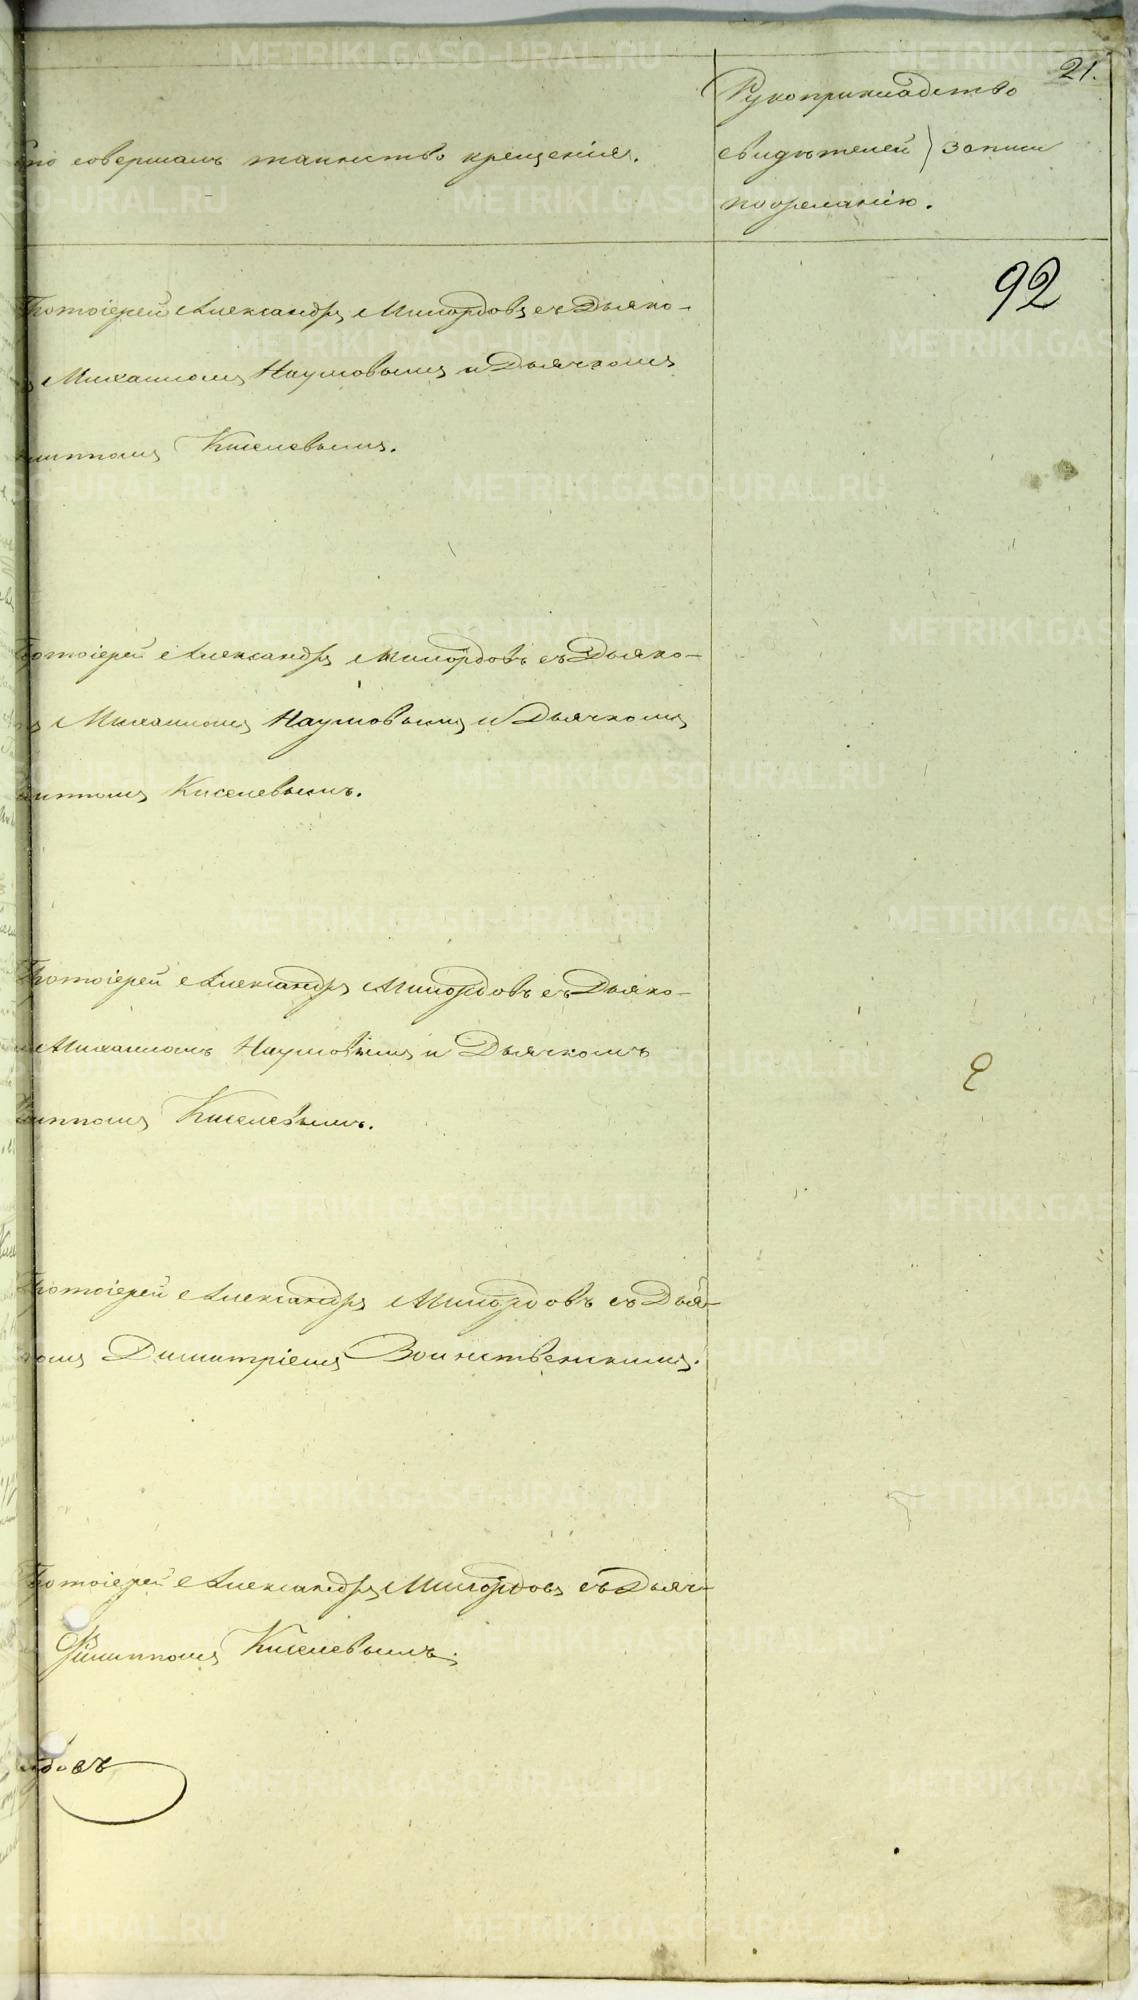 21.
Рукоприкладство
Кто совершалъ таинство крещенія.
свидѣтелей записи
по желанію.
92
Протоіерей Александръ Милордовъ съ Дьяко-
Михаиломъ Наумовымъ и Дьячкомъ
Филиппомъ Киселевымъ.
Протоіерей Александръ Милордовъ съ Дьяко-
Михаиломъ Наумовымъ и Дьячкомъ
Филиппомъ Киселевымъ.
Протоіерей Александръ Милордовъ съ Дьяко-
Михаиломъ Наумовымъ и Дьячкомъ
Филиппомъ Киселевымъ.
Протоіерей Александръ Милордовъ съ Дья-
комъ Димитріемъ Воинственскимъ.
Протоіерей Александръ Милордовъ съ Дьяч-
Филиппомъ Киселевымъ.
METRIKI.GASO-URAL.RU